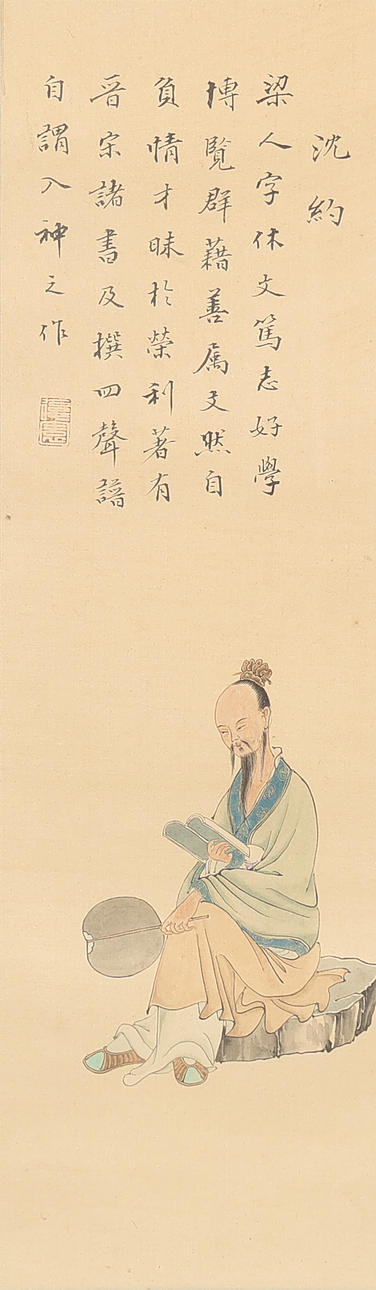 沈約
梁人字休文篤志好學
博覽群藉善属文然自
負情才昧於榮利著有
晋宋諸書及撰四聲譜
自謂入神之作